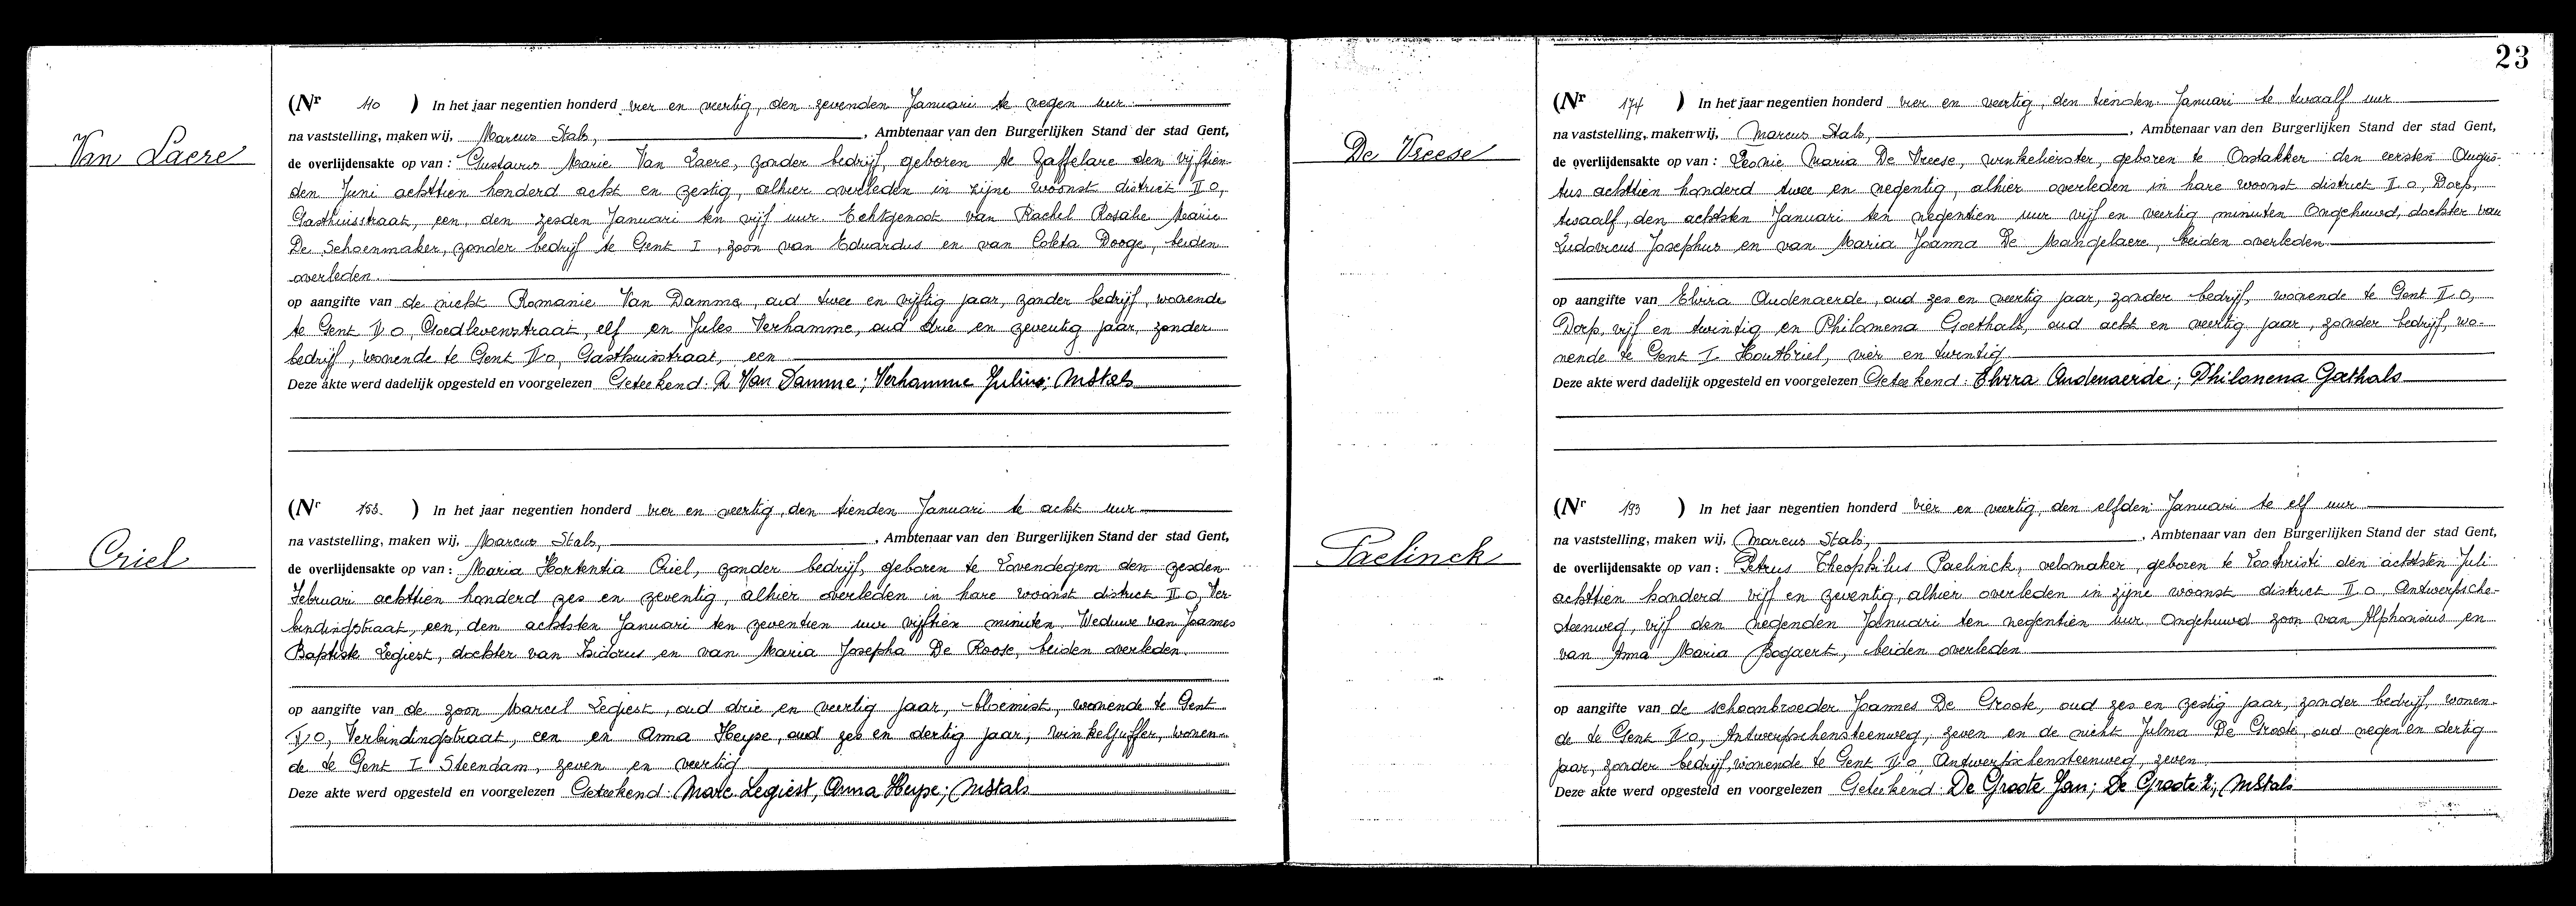 Van Laere
(Nr 110 ) In het jaar negentien honderd vier en veertig, den zevenden Januari te negen uur
na vaststelling, maken wij, Marcus Stals, , Ambtenaar van den Burgerlijken Stand der stad Gent,
de overlijdensakte op van : Gustavus Marie Van Laere, zonder bedrijf, geboren te Zaffelare den vijftien-
den Juni achttien honderd acht en zestig, alhier overleden in zijne woonst district II o,
Gasthuisstraat, een, den zesden Januari ten vijf uur. Echtgenoot van Rachel Rosalie Marie
De Schoenmaker, zonder bedrijf te Gent I, zoon van Eduardus en van Coleta Dooge, beiden
overleden.
op aangifte van de nicht Romanie Van Damme, oud twee en vijftig jaar, zonder bedrijf, wonende
te Gent II o, Goedlevenstraat, elf en Jules Verhamme, oud drie en zeventig jaar, zonder
bedrijf, wonende te Gent II o, Gasthuisstraat, een
Deze akte werd dadelijk opgesteld en voorgelezen Geteekend: R Van Damme; Verhamme Julius; MStals
Criel
(Nr 153. ) In het jaar negentien honderd vier en veertig, den tienden Januari te acht uur
na vaststelling, maken wij, Marcus Stals, , Ambtenaar van den Burgerlijken Stand der stad Gent,
de overlijdensakte op van : Maria Hortentia Criel, zonder bedrijf, geboren te Lovendegem den zesden
Februari achttien honderd zes en zeventig, alhier overleden in hare woonst district II o, Ver
bindingstraat, een, den achtsten Januari ten zeventien uur vijftien minuten. Weduwe van Joannes
Baptiste Legiest, dochter van Isidorus en van Maria Josepha De Roose, beiden overleden.
op aangifte van de zoon Marcel Legiest, oud drie en veertig jaar, bloemist, wonende te Gent
II o, Verbindingstraat, een en Anna Heyse, oud zes en dertig jaar, winkeljuffer, wonen-
de te Gent I Steendam, zeven en veertig
Deze akte werd opgesteld en voorgelezen Geteekend: Marc. Legiest, Anna Heyse; MStals
23
De Vreese
(Nr 174 ) In het jaar negentien honderd vier en veertig, den tienden Januari te twaalf uur
na vaststelling, maken wij, Marcus Stals, , Ambtenaar van den Burgerlijken Stand der stad Gent,
de overlijdensakte op van : Leonie Maria De Vreese, winkelierster, geboren te Oostakker den eersten Augus-
tus achttien honderd twee en negentig, alhier overleden in hare woonst district II o, Dorp,
twaalf, den achtsten Januari ten negentien uur vijf en veertig minuten Ongehuwd, dochter van
Ludovicus Josephus en van Maria Joanna De Mangelaere, beiden overleden
op aangifte van Elvira Oudenaerde, oud zes en veertig jaar, zonder bedrijf, wonende te Gent II o,
Dorp, vijf en twintig en Philomena Goethals, oud acht en veertig jaar, zonder bedrijf, wo-
nende te Gent I Houtbriel, vier en twintig
Deze akte werd dadelijk opgesteld en voorgelezen Geteekend: Elvira Oudenaerde; Philomena Goethals
Paelinck
(Nr 193 ) In het jaar negentien honderd vier en veertig, den elfden Januari te elf uur
na vaststelling, maken wij, Marcus Stals, , Ambtenaar van den Burgerlijken Stand der stad Gent,
de overlijdensakte op van : Petrus Theophilus Paelinck, velomaker, geboren te Loochristi den achtsten Juli
achttien honderd vijf en zeventig, alhier overleden in zijne woonst district II o, Antwerpsche-
steenweg, vijf den negenden Januari ten negentien uur. Ongehuwd zoon van Alphonsius en
van Anna Maria Bogaert, beiden overleden
op aangifte van de schoonbroeder Joannes De Groote, oud zes en zestig jaar, zonder bedrijf, wonen-
de te Gent II o, Antwerpschensteenweg, zeven en de nicht Julma De Groote, oud negen en dertig
jaar, zonder bedrijf, wonende te Gent II o, Antwerpschensteenweg, zeven
Deze akte werd opgesteld en voorgelezen Geteekend: De Groote Jan; De Groote Z; MStals